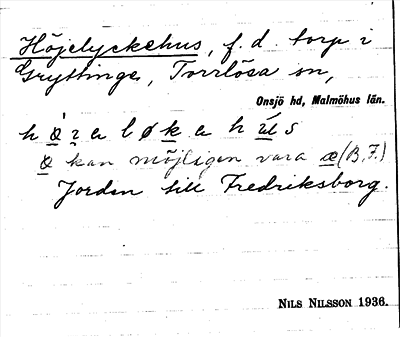 Höjelyckehus, f. d. torp i
Gryttinge, Torrlösa sn,
Onsjö hd, Malmöhus län.
kan möjligen vara æ (B.F.)
Jorden till Fredriksborg.
NILS NILSSON 1936.